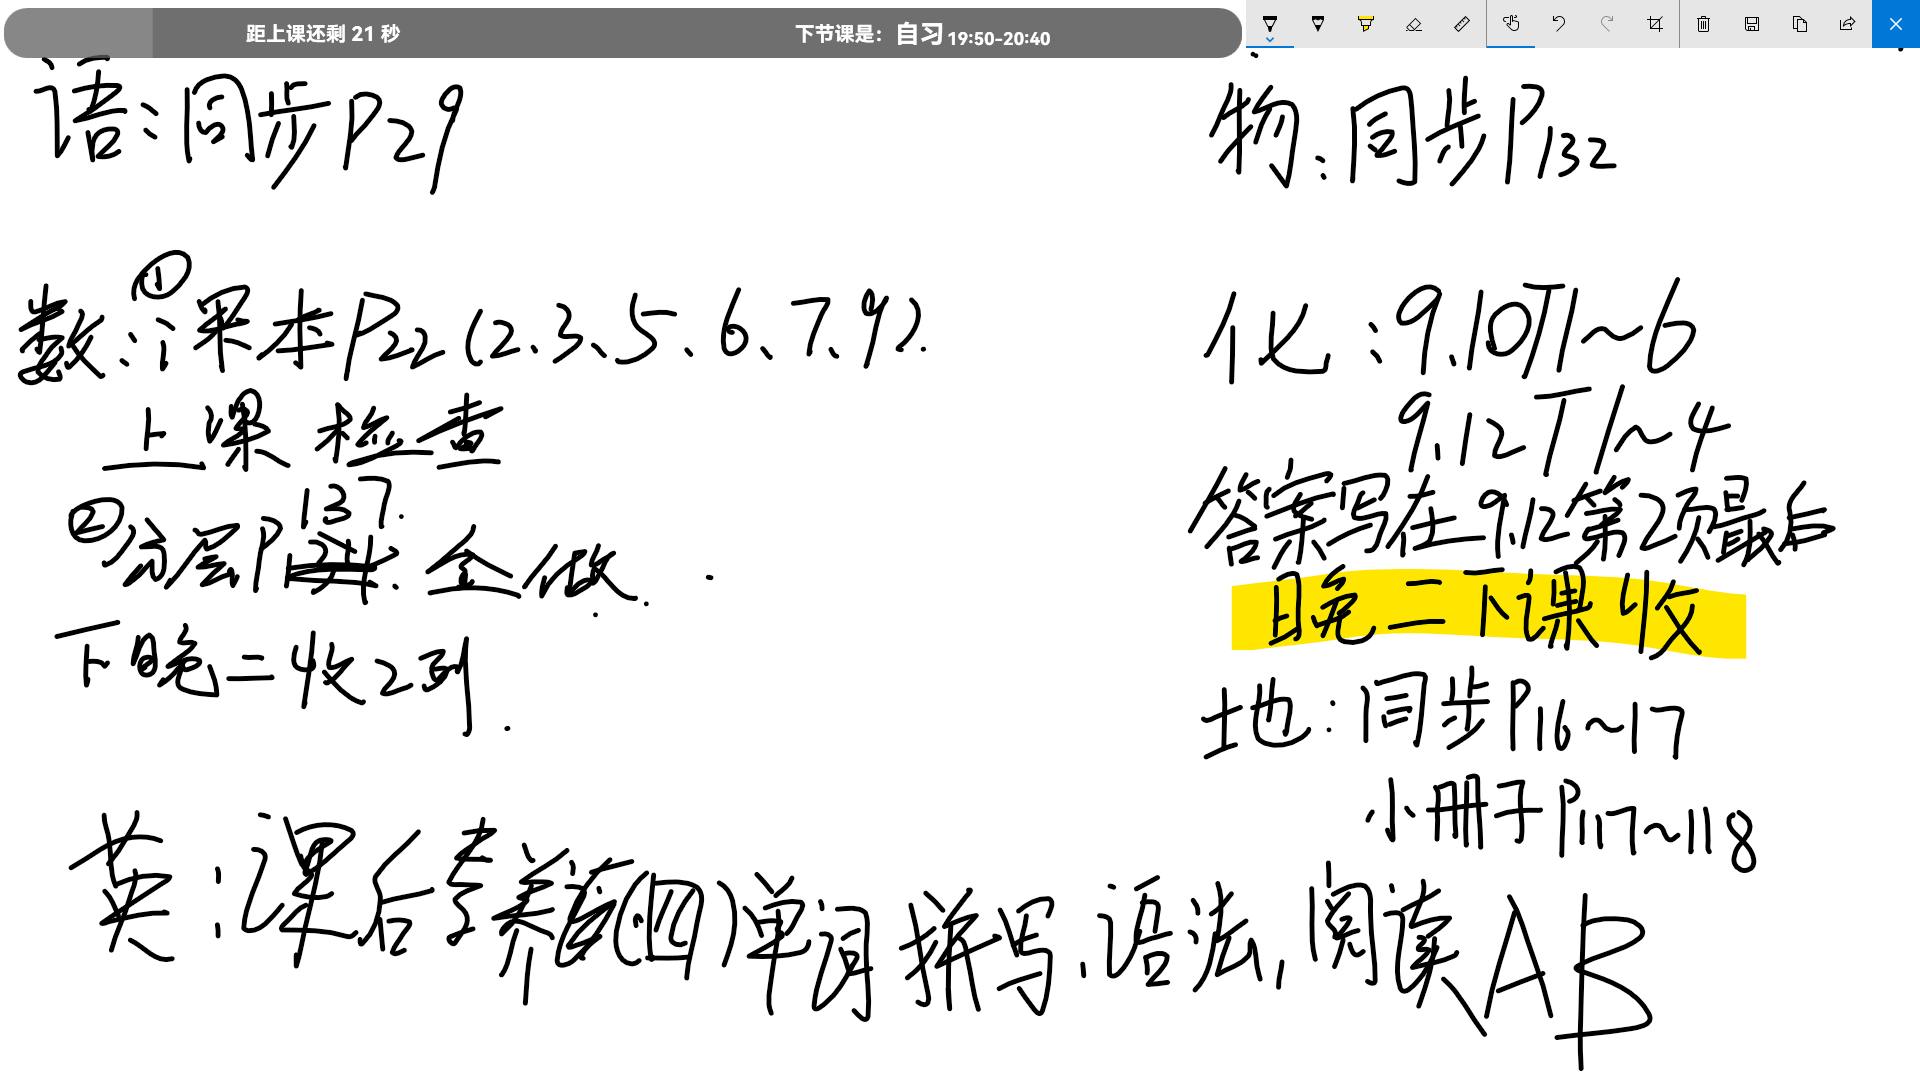 距上课还剩 21 秒
下节课是：自习 19:50-20:40
语：同步P29
数：①课本P22（2、3、5、6、7、9）.
上课检查
②分层P137. 全做.
下晚二收2列.
英：课后素养(四)单词拼写、语法, 阅读AB
物：同步P132
化：9.10T1~6
9.12T1~4
答案写在9.12第2页最后
晚二下课收
地：同步P16~17
小册子P117~118